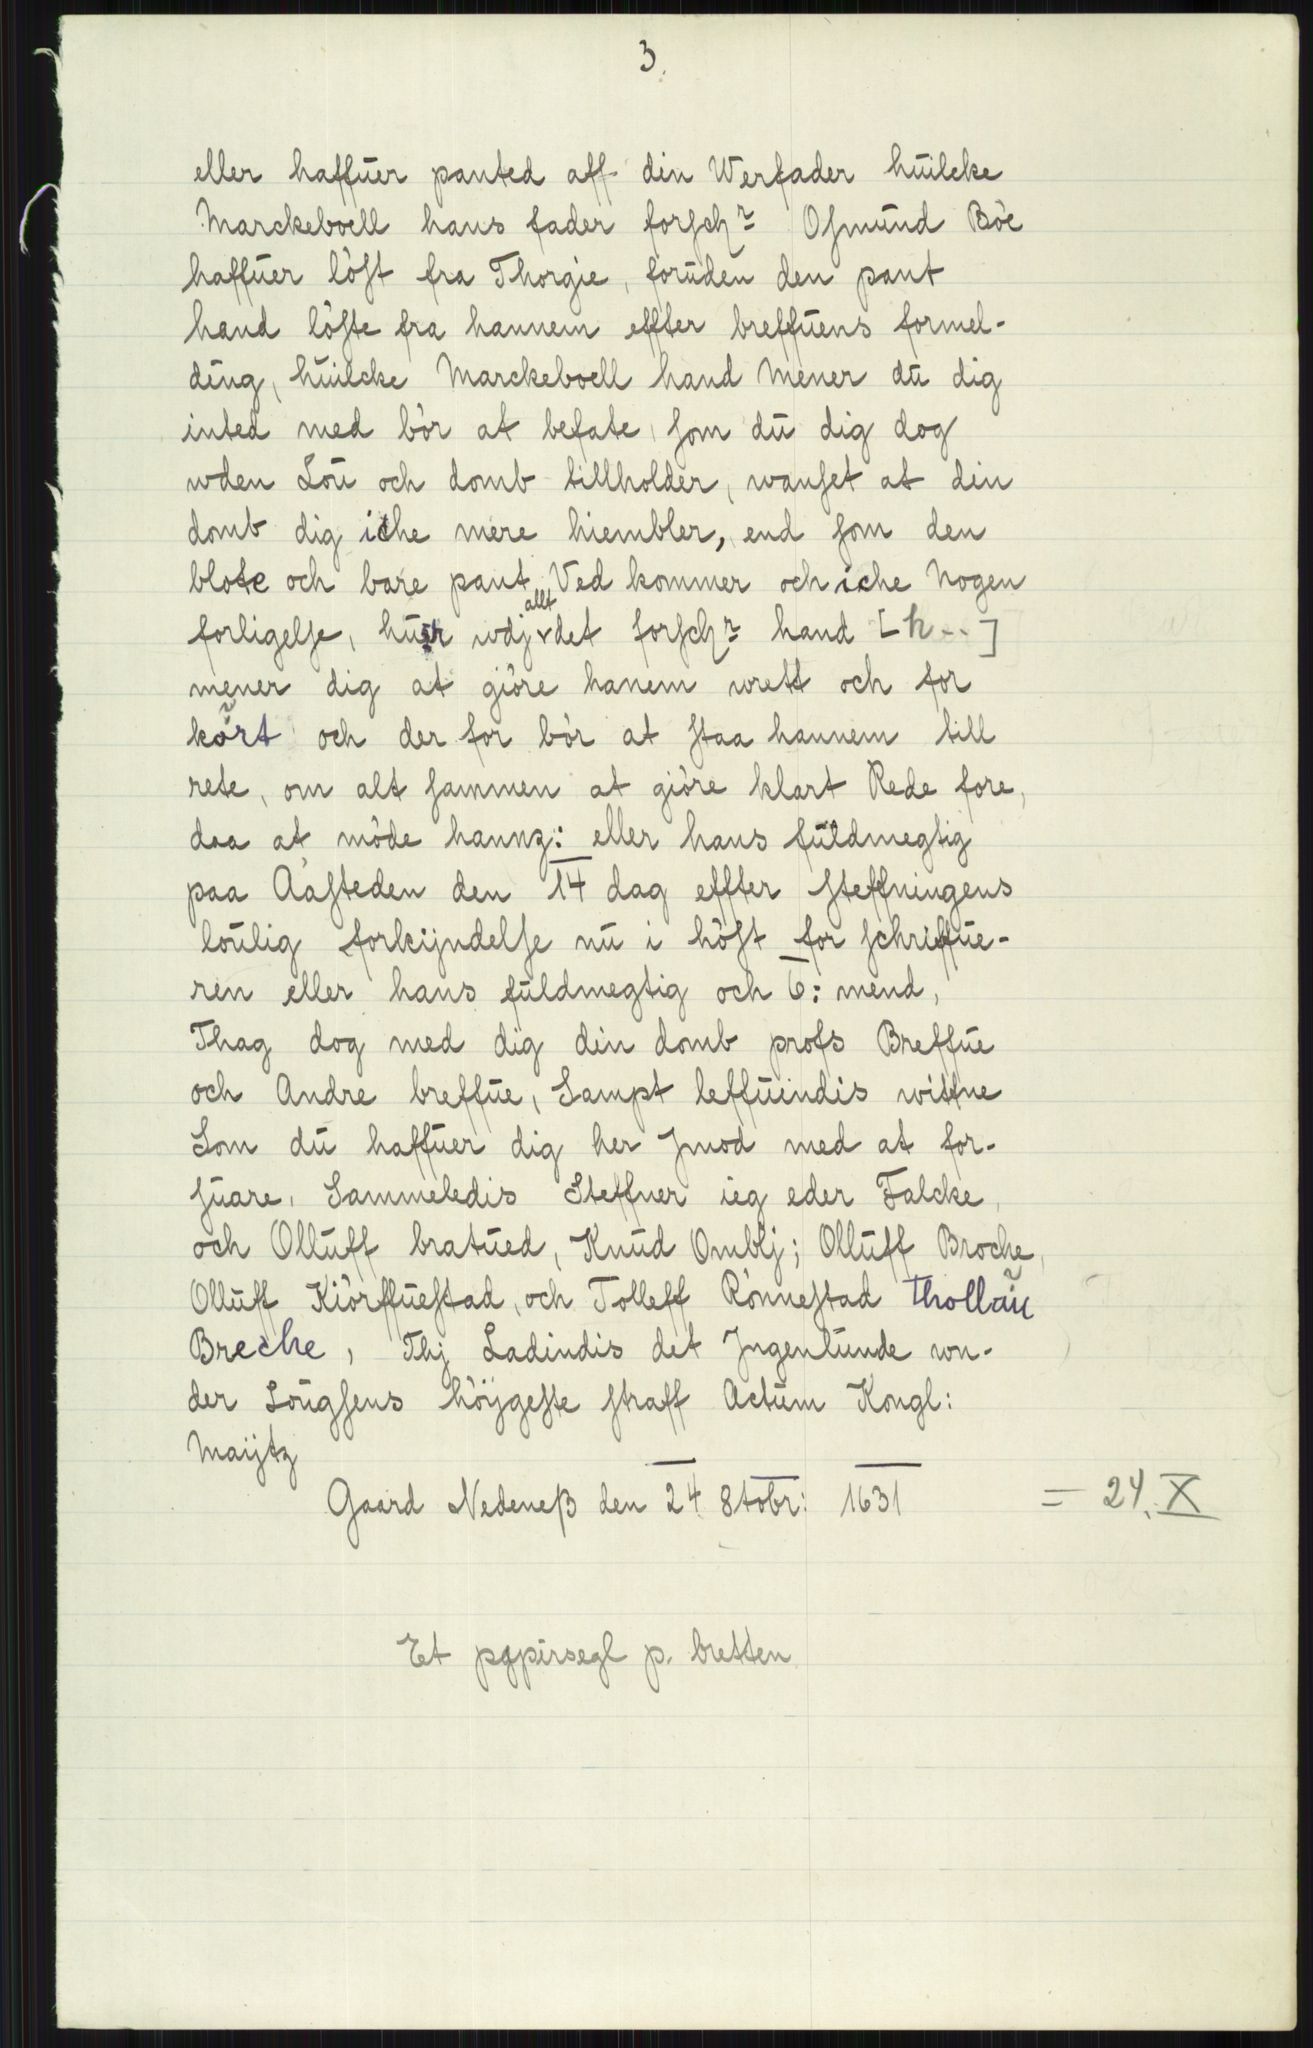 3.
eller haffuer panted aff din Werfader huilcke
Marckeboell hans fader forschr Osmund Böe
haffuer löst fra Thorgie, foruden den pant
hand löste fra hannem effter breffuens formel-
ding, huilcke Marckeboell hand Mener du dig
inted med bör at befate, som du dig dog
wden Lou och domb tillholder, wanset at din
domb dig iche mere hiembler, end som den
blote och bare pant Ved kommer och iche Nogen
forligelse, huer wdj allt det forschr hand [h--]
mener dig at giöre hanem wrett och for
kört och der for bör at staa hannem till
rete, om alt sammen at giöre klart Rede fore,
daa at möde hannz: eller hans fuldmegtig
paa Aasteden den 14 dag effter steffningens
loulig forkijndelse nu i höst for schriffue-
ren eller hans fuldmegtig och 6: mend,
Thag dog med dig din domb profs Breffue
och Andre breffue, Sampt leffuindis wittne
Som du haffuer dig her Jmod med at for-
suare, Sammeledis Steffner ieg eder Falcke,
och Olluff bratued, Knud Omblj; Olluff Broche,
Olluff Kiörffuestad, och Tolleff Rönnestad thollău
Breche, Thj Ladindis det Jngenlunde wn-
der Lougsens höijgeste straff Actum Kongl:
Maijtz
Gaard Nedeneß den 24 8tobr: 1631 = 24. X
Et papirsegl p. bretten